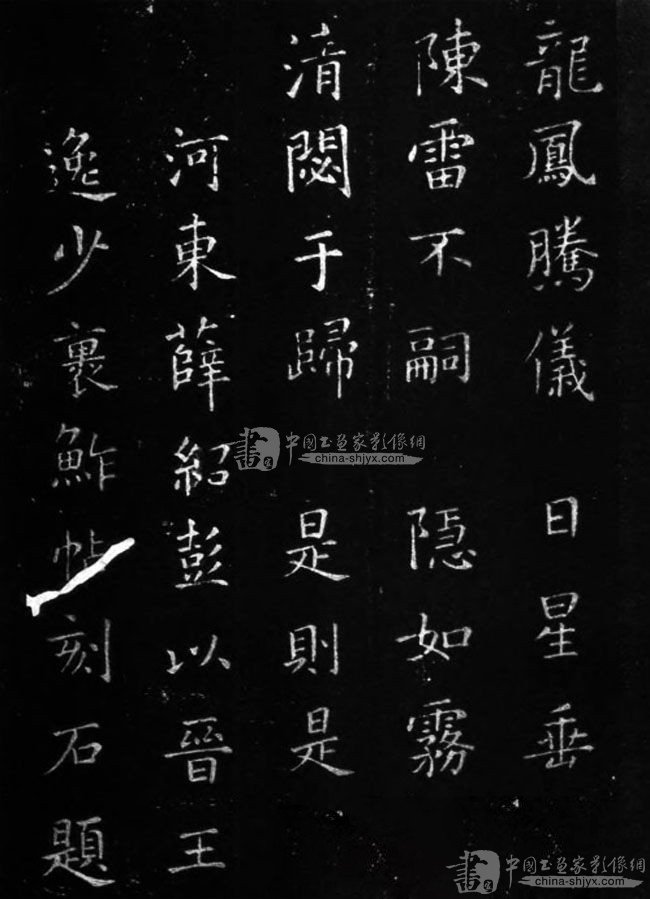 龍鳳騰儀 日星垂
陳雷不嗣 隠如霧
清閟于歸 是則是
河東薛紹彭以晉王
逸少裹鮓帖刻石題
中国书画家影像網
china-shjyx.com
中国书画家影像網
china-shjyx.com